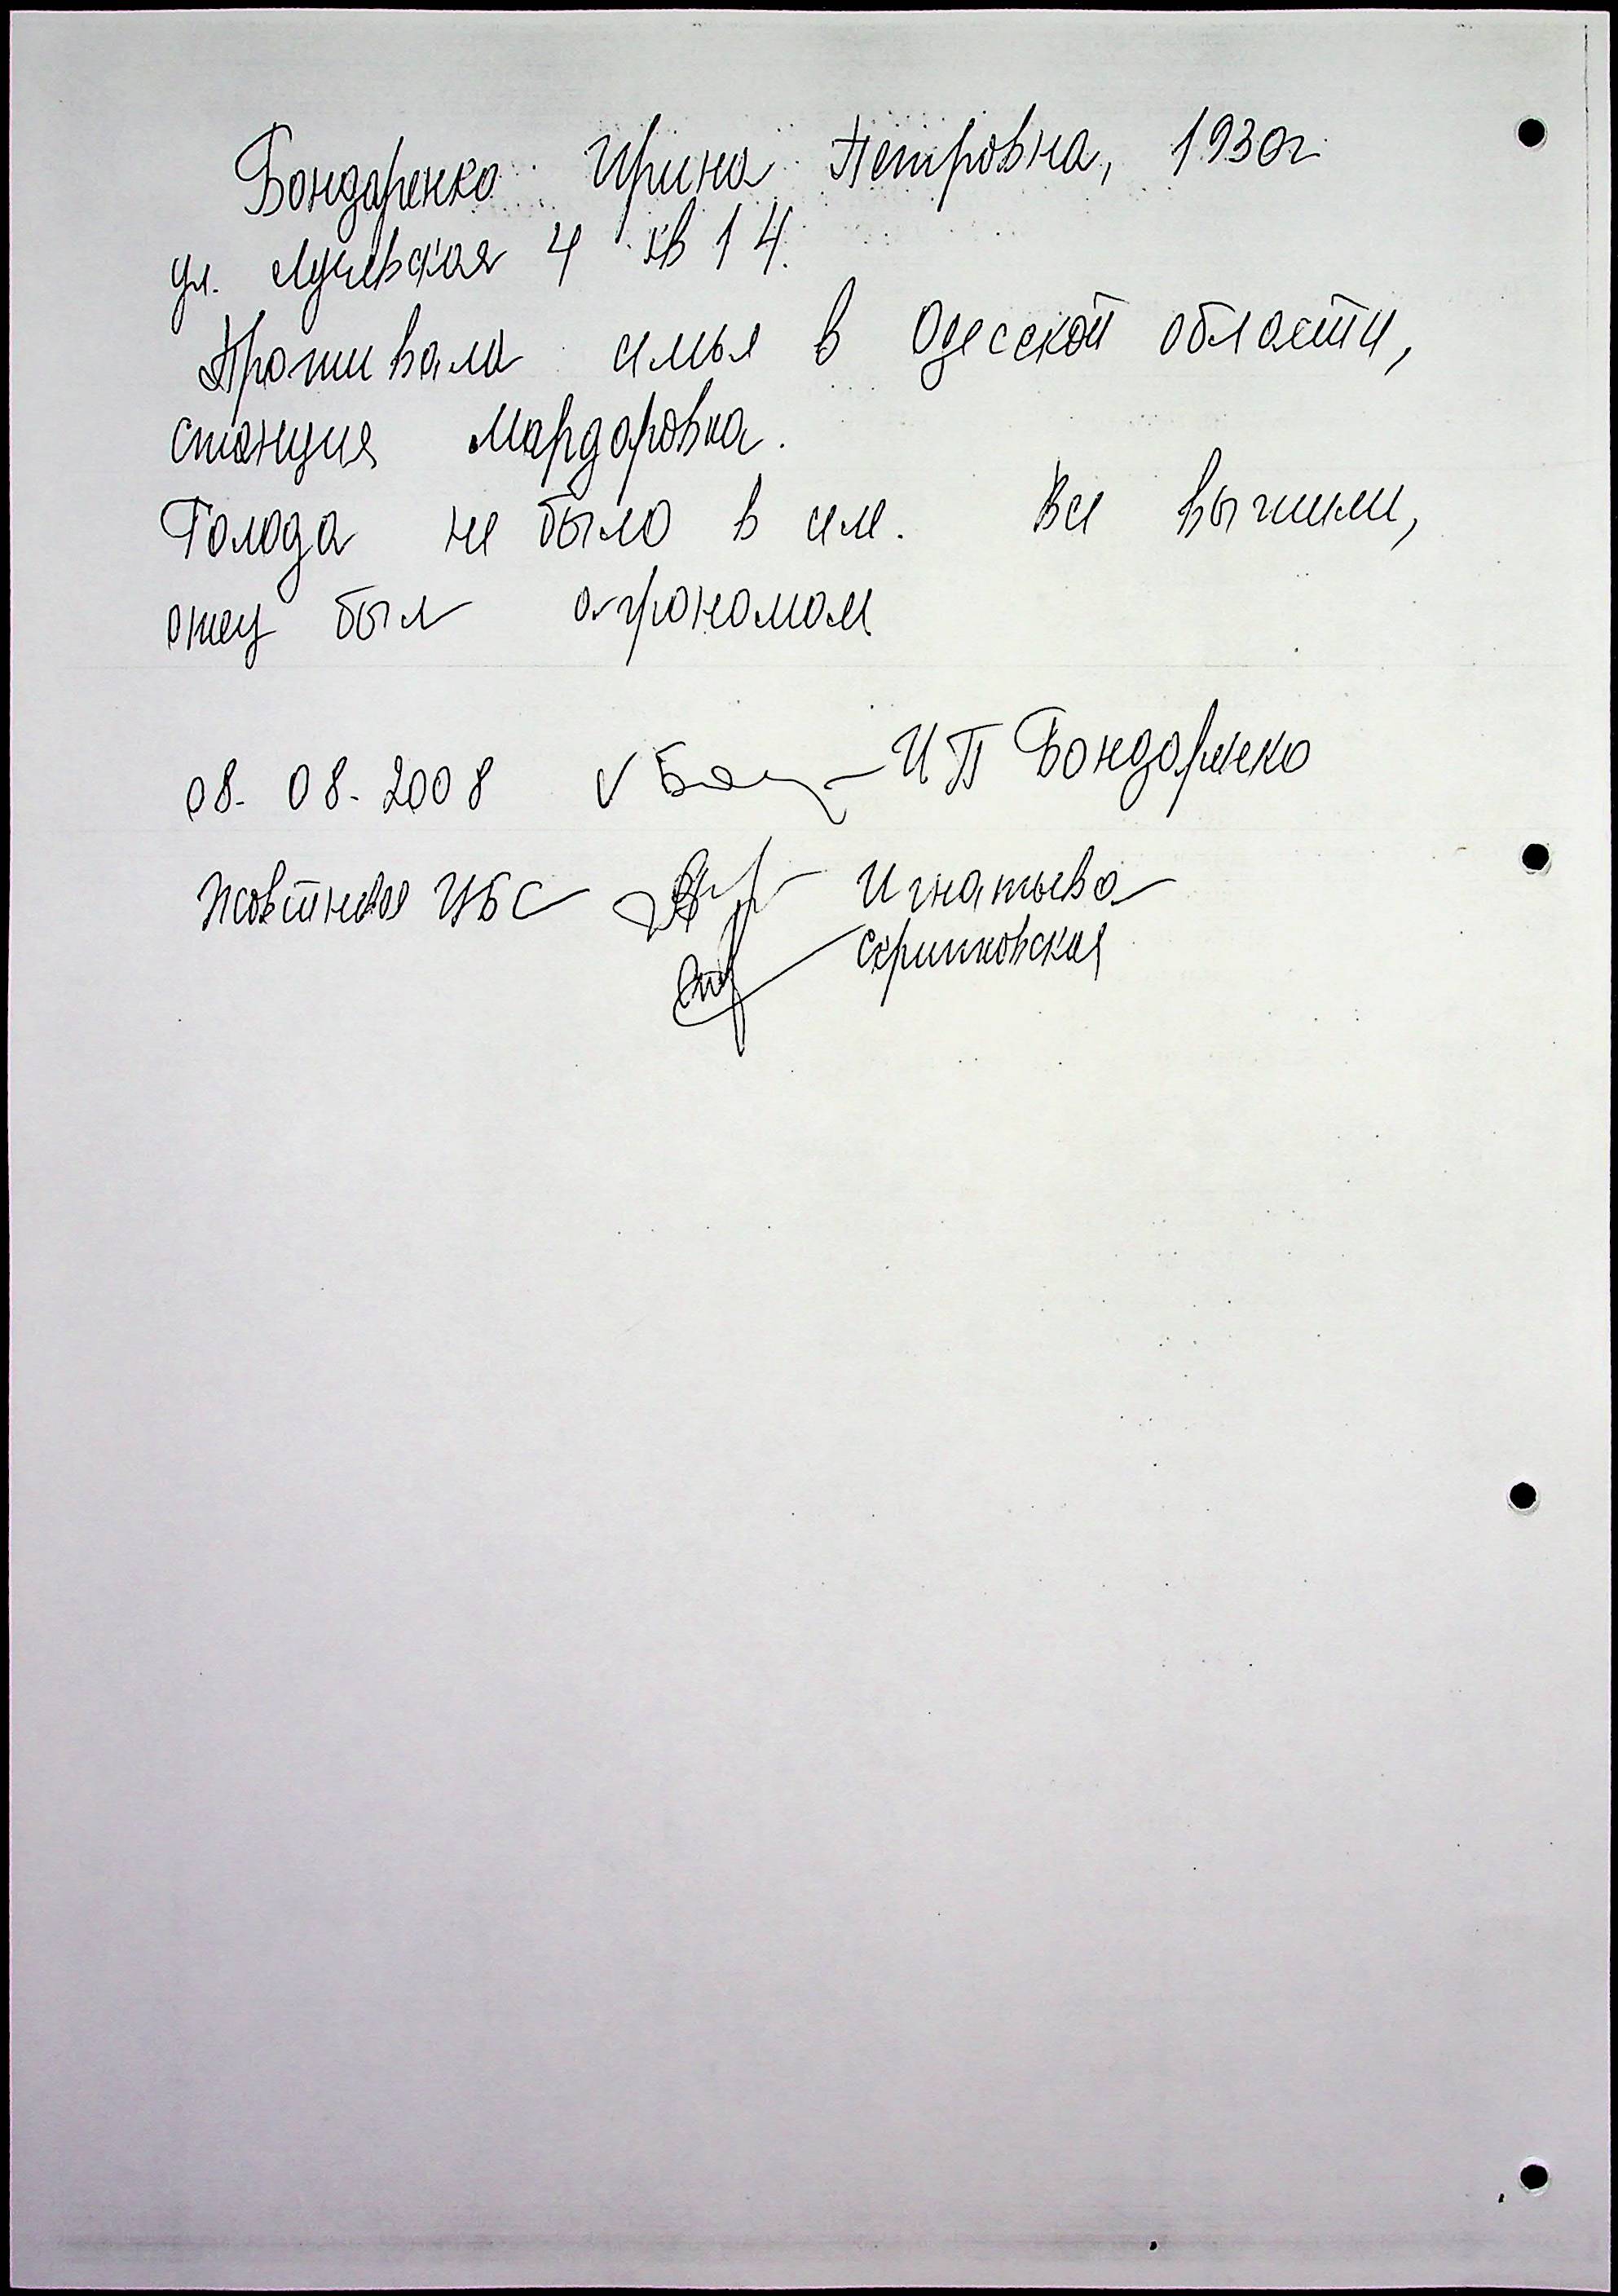 Бондаренко Ирина Петровна, 1930г
ул. 4 кв 14.
Проживала семья в Одесской области,
станция Мардаровка.
Голода не было в селе. Все выжили,
отец был агрономом
08. 08. 2008 И П Бондаренко
Жовтневая ЦБС Игнатьева
Скрипковская